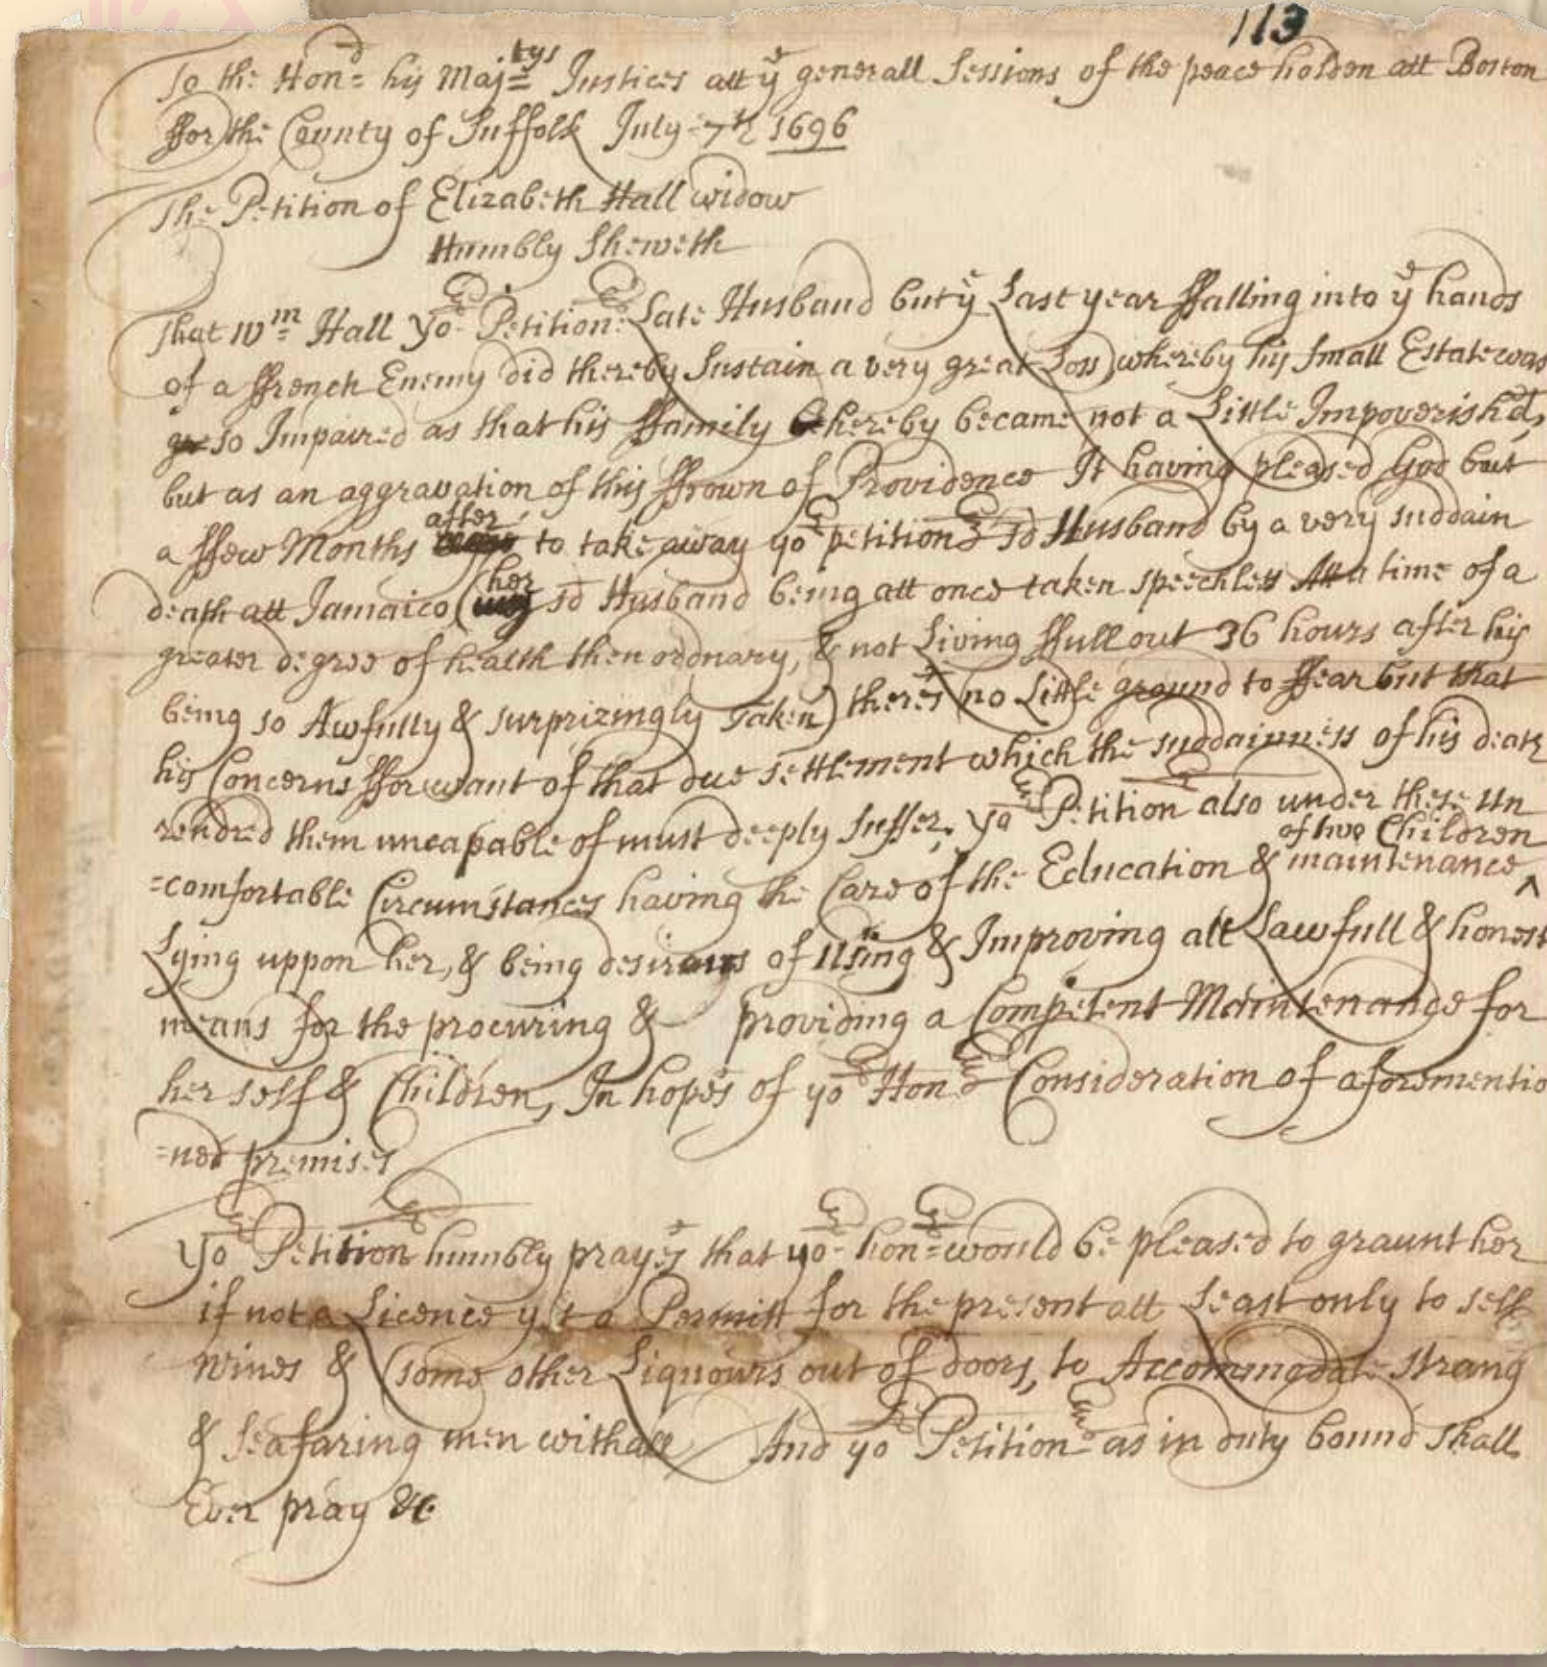 113
To the Hon:d his Maj:tys Justices att ye generall Sessions of the peace holden att Boston
ffor the County of Suffolk July 7th 1696
The Petition of Elizabeth Hall widow
Humbly Sheweth
That Wm Hall yor Petitionrs Late Husband but ye Last year ffalling into ye hands
of a ffrench Enemy did thereby Sustain a very great Loss whereby his Small Estate was
so Impaired as that his ffamily thereby became not a Little Impoverish'd,
but as an aggravation of this ffrown of Providence It having pleased God but
a ffew Months after to take away yor petitionrs sd Husband by a very suddain
death att Jamaico (her sd Husband being att once taken speechless Att a time of a
greater degree of health then ordnary, & not Living ffull out 36 hours after his
being so Awfully & surprizingly Taken) there's no Little ground to ffear but that
his Concerns ffor want of that due settlement which the suddainness of his death
rendred them uncapable of must deeply suffer, Yor Petitionr also under these un
=comfortable Circumstances having the Care of the Education & maintenance ^ of two Children
Lying uppon her, & being desirous of Using & Improving all Lawfull & honest
means for the procuring & providing a Competent Maintenance for
her self & Children, In hopes of yor Honrs Consideration of aforementio
=ned premises
Yor Petitionr humbly prayes that yor honrs would be pleased to graunt her
if not a Licence yet a Permitt for the present att Least only to sell
wines & some other Liquours out of doors, to Accommodate strang
& seafaring men withall And yor Petitionr as in duty bound shall
Ever pray &c